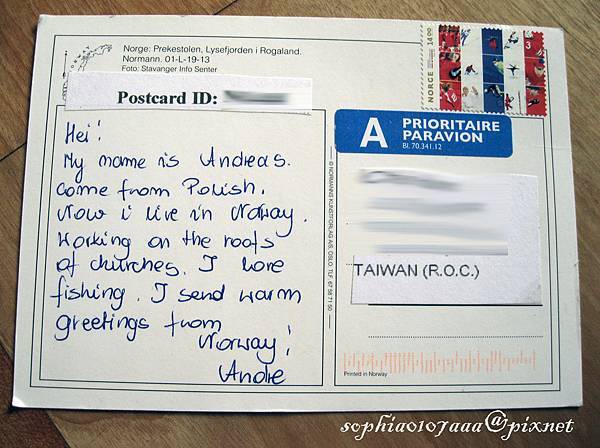 Norge: Prekestolen, Lysefjorden i Rogaland.
Normann. 01-L-19-13
Foto: Stavanger Info Senter
Postcard ID:
Hei!
My name is Andreas.
come from Polish.
Now i live in Norway.
Working on the roofs
of churches. I love
fishing. I send warm
greetings from
Norway!
Andre
© NORMANNS KUNSTFORLAG A/S, OSLO. TLF. 67 58 71 50
NORGE 14 00
3
10
A PRIORITAIRE
PARAVION
Bl. 70.341.12
TAIWAN (R.O.C.)
Printed in Norway
sophia0107aaa@pixnet